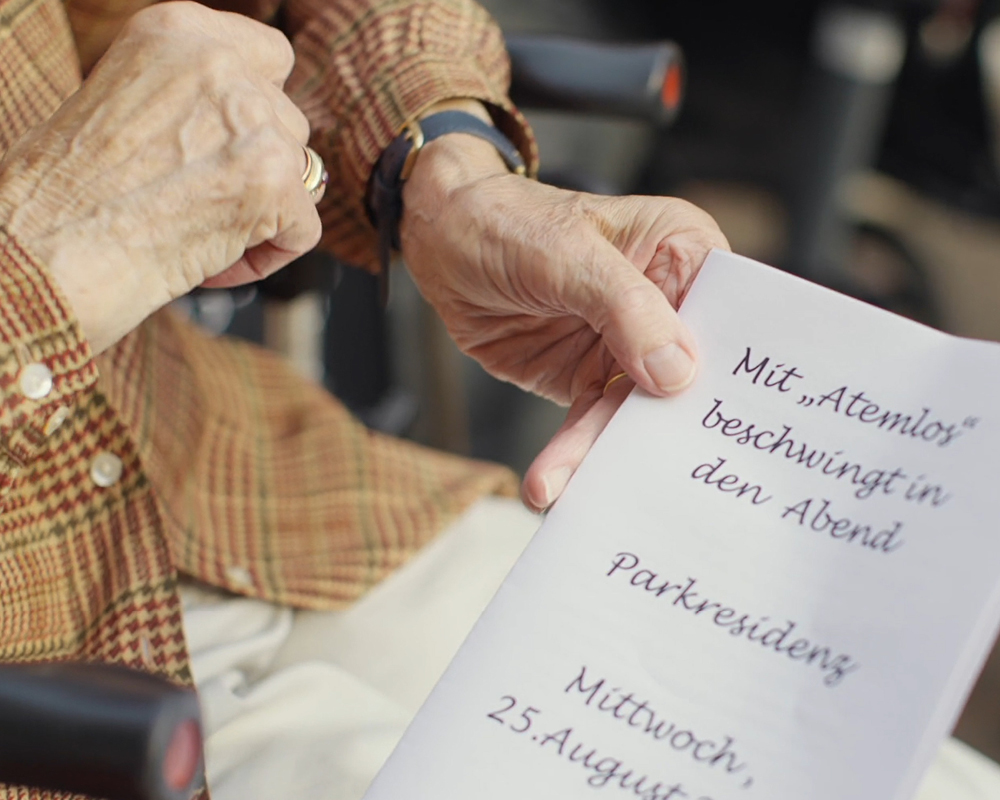 Mit „Atemlos“
beschwingt in
den Abend
Parkresidenz
Mittwoch,
25.August